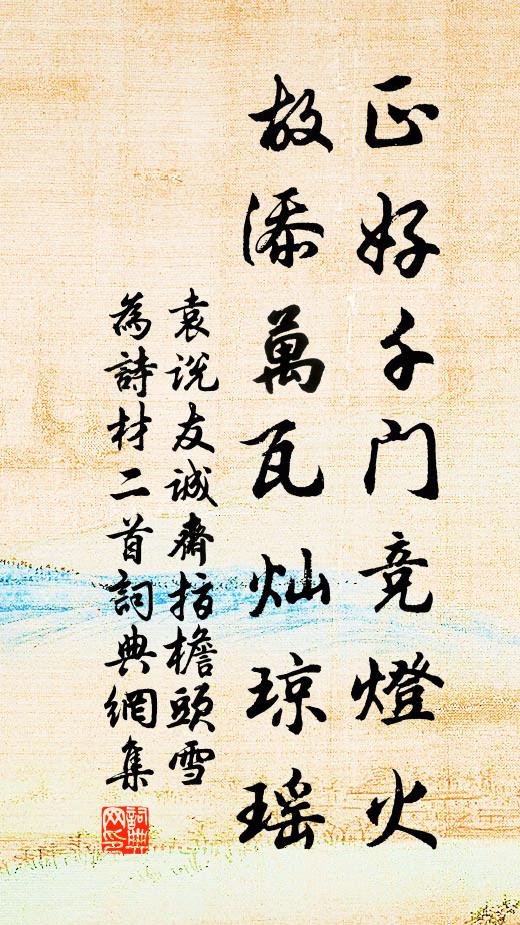 正好千门竞燈火
故添萬瓦灿琼瑶
袁说友诚齋指檐頭雪
為詩材二首詞典網集
詞典
网印